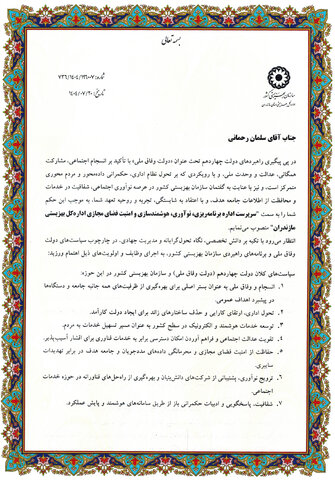 بسمه تعالی
شماره: ۷۳۶/۱۴۰۴/۱۳۶۰۷
تاریخ: ۱۴۰۴/۰۷/۲۰
سازمان بهزیستی کشور
جناب آقای سلمان رحمانی
در پی پیگیری راهبردهای دولت چهاردهم تحت عنوان «دولت وفاق ملی» با تأکید بر انسجام اجتماعی، مشارکت
همگانی، عدالت و وحدت ملی، و با رویکردی که بر تحول نظام اداری، حکمرانی داده‌محور و مردمی محوری
متمرکز است، و نیز با عنایت به گفتمان سازمان بهزیستی کشور در عرصه نوآوری اجتماعی، شفافیت در خدمات
و محافظت از اطلاعات جامعه هدف، و با اعتقاد به شایستگی، تجربه و روحیه تعهد شما، به موجب این حکم
شما را به سمت "سرپرست اداره برنامه‌ریزی، نوآوری، هوشمندسازی و امنیت فضای مجازی اداره‌کل بهزیستی
مازندران" منصوب می‌نمایم.
انتظار می‌رود با تکیه بر دانش تخصصی، نگاه تحول‌گرایانه و مدیریت جهادی، در چارچوب سیاست‌های دولت
وفاق ملی و برنامه‌های راهبردی سازمان بهزیستی کشور، به اجرای وظایف و اولویت‌های ذیل اهتمام ورزید:
سیاست‌های کلان دولت چهاردهم (دولت وفاق ملی) و سازمان بهزیستی کشور در این حوزه:
۱. انسجام و وفاق ملی به عنوان بستر اصلی برای بهره‌گیری از ظرفیت‌های همه جانبه جامعه و دستگاه‌ها
در پیشبرد اهداف عمومی.
۲. تحول اداری، ارتقای کارایی و حذف ساختارهای زائد برای ایجاد دولت کارآمد.
۳. توسعه خدمات هوشمند و الکترونیک در سطح کشور به عنوان مسیر تسهیل خدمات به مردم.
۴. تقویت عدالت اجتماعی و فراهم آوردن امکان دسترسی برابر به خدمات فناوری برای اقشار آسیب‌پذیر.
۵. حفاظت از امنیت فضای مجازی و محرمانگی داده‌های مددجویان و جامعه هدف در برابر تهدیدات
سایبری.
۶. ترویج نوآوری، پشتیبانی از شرکت‌های دانش‌بنیان و بهره‌گیری از راه‌حل‌های فناورانه در حوزه خدمات
اجتماعی.
۷. شفافیت، پاسخگویی و ادبیات حکمرانی باز از طریق سامانه‌های هوشمند و پایش عملکرد.